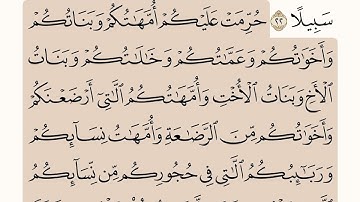 سَبِيلًا ٢٢ حُرِّمَتْ عَلَيْكُمْ أُمَّهَٰتُكُمْ وَبَنَاتُكُمْ
وَأَخَوَٰتُكُمْ وَعَمَّٰتُكُمْ وَخَٰلَٰتُكُمْ وَبَنَاتُ
ٱلْأَخِ وَبَنَاتُ ٱلْأُخْتِ وَأُمَّهَٰتُكُمُ ٱلَّٰتِىٓ أَرْضَعْنَكُمْ
وَأَخَوَٰتُكُم مِّنَ ٱلرَّضَٰعَةِ وَأُمَّهَٰتُ نِسَآئِكُمْ
وَرَبَٰٓئِبُكُمُ ٱلَّٰتِى فِى حُجُورِكُم مِّن نِّسَآئِكُمُ